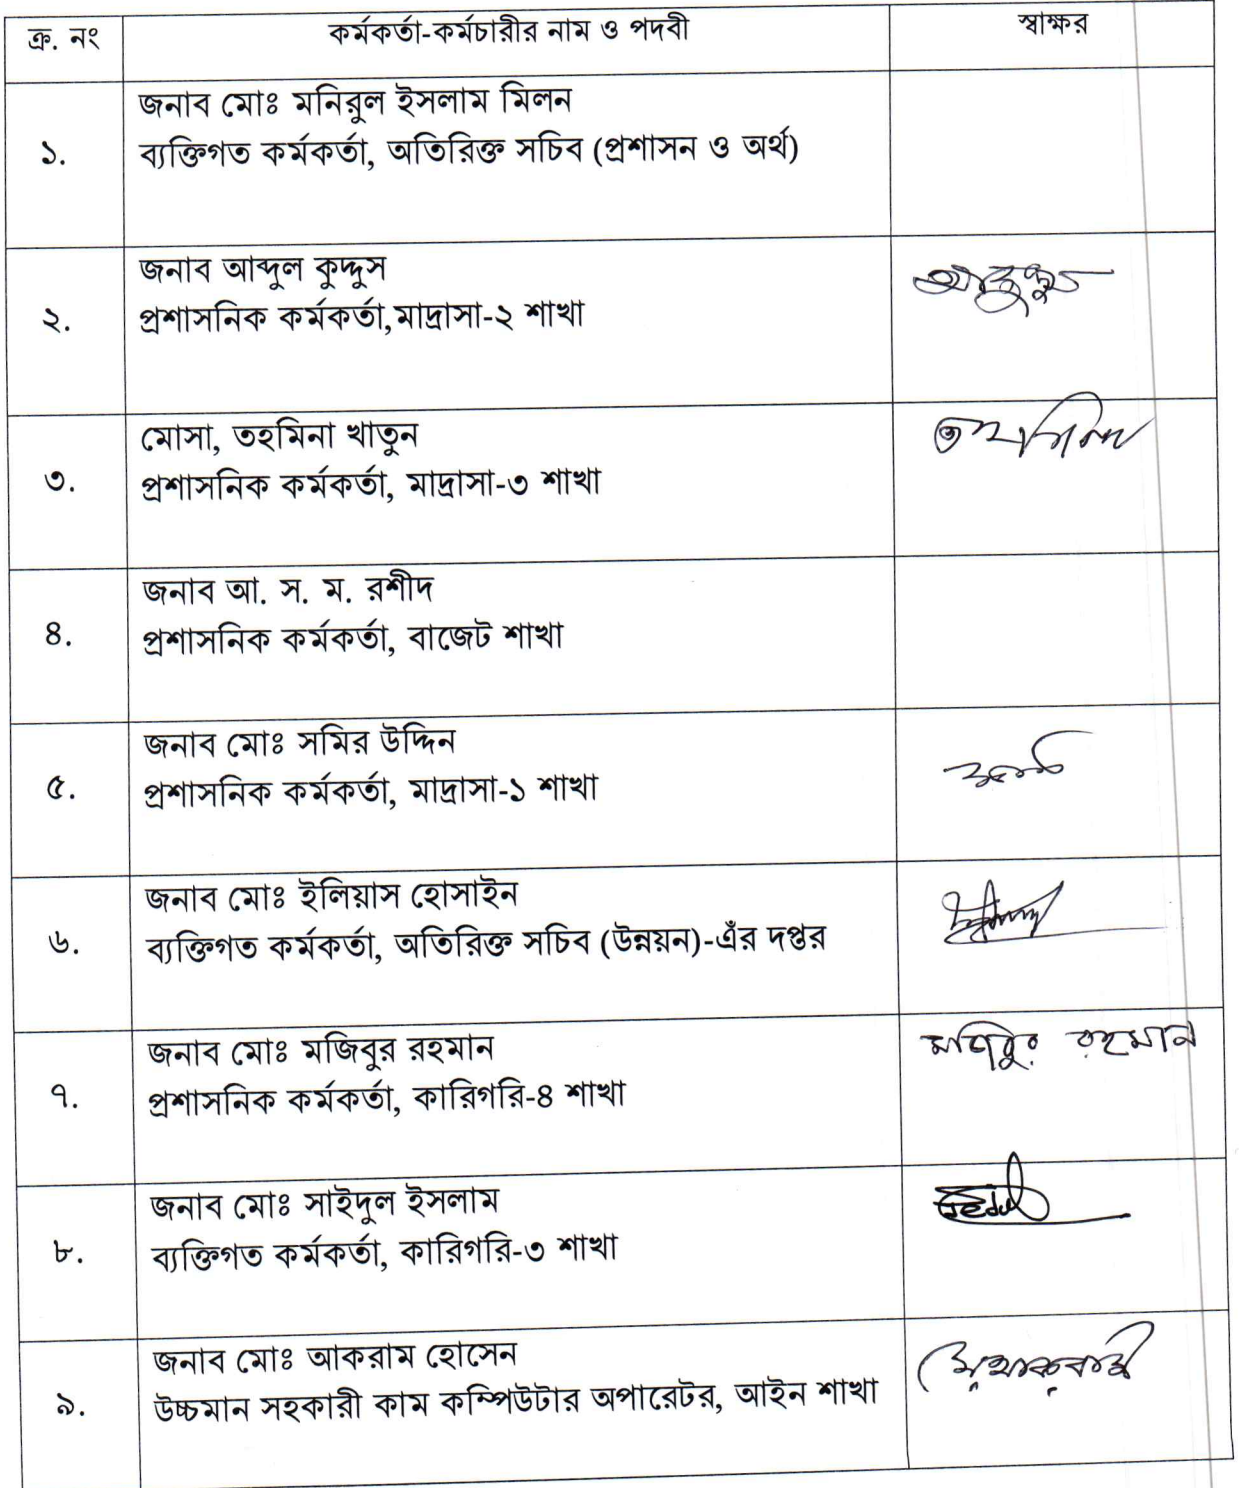 ক্র. নং কর্মকর্তা-কর্মচারীর নাম ও পদবী স্বাক্ষর
জনাব মোঃ মনিরুল ইসলাম মিলন
১. ব্যক্তিগত কর্মকর্তা, অতিরিক্ত সচিব (প্রশাসন ও অর্থ)
জনাব আব্দুল কুদ্দুস
২. প্রশাসনিক কর্মকর্তা,মাদ্রাসা-২ শাখা
মোসা, তহমিনা খাতুন
৩. প্রশাসনিক কর্মকর্তা, মাদ্রাসা-৩ শাখা
জনাব আ. স. ম. রশীদ
৪. প্রশাসনিক কর্মকর্তা, বাজেট শাখা
জনাব মোঃ সমির উদ্দিন
৫. প্রশাসনিক কর্মকর্তা, মাদ্রাসা-১ শাখা
জনাব মোঃ ইলিয়াস হোসাইন
৬. ব্যক্তিগত কর্মকর্তা, অতিরিক্ত সচিব (উন্নয়ন)-এঁর দপ্তর
জনাব মোঃ মজিবুর রহমান মজিবুর রহমান
৭. প্রশাসনিক কর্মকর্তা, কারিগরি-৪ শাখা
জনাব মোঃ সাইদুল ইসলাম
৮. ব্যক্তিগত কর্মকর্তা, কারিগরি-৩ শাখা
জনাব মোঃ আকরাম হোসেন
৯. উচ্চমান সহকারী কাম কম্পিউটার অপারেটর, আইন শাখা